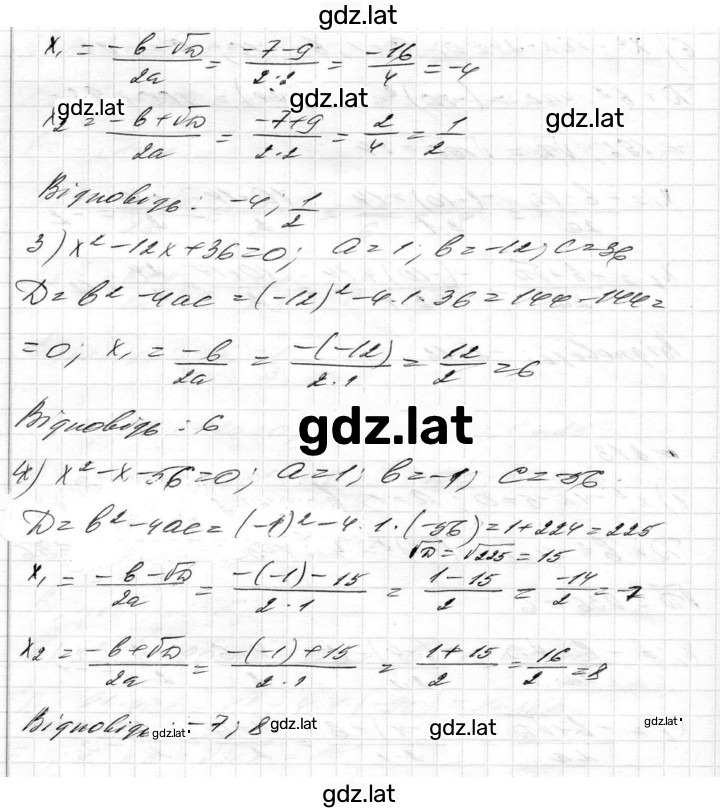 gdz.lat
x₁ = (-b-√D)/2a = (-7-9)/(2·2) = -16/4 = -4
gdz.lat
gdz.lat
gdz.lat
x₂ = (-b+√D)/2a = (-7+9)/(2·2) = 2/4 = 1/2
Відповідь: -4; 1/2
3) x² - 12x + 36 = 0; a = 1; b = -12; c = 36
D = b² - 4ac = (-12)² - 4·1·36 = 144 - 144 =
= 0; x₁ = -b/2a = -(-12)/(2·1) = 12/2 = 6
Відповідь: 6
gdz.lat
4) x² - x - 56 = 0; a = 1; b = -1; c = -56
D = b² - 4ac = (-1)² - 4·1·(-56) = 1 + 224 = 225
√D = √225 = 15
x₁ = (-b-√D)/2a = (-(-1)-15)/(2·1) = (1-15)/2 = -14/2 = -7
x₂ = (-b+√D)/2a = (-(-1)+15)/(2·1) = (1+15)/2 = 16/2 = 8
Відповідь: -7; 8
gdz.lat
gdz.lat
gdz.lat
gdz.lat
gdz.lat